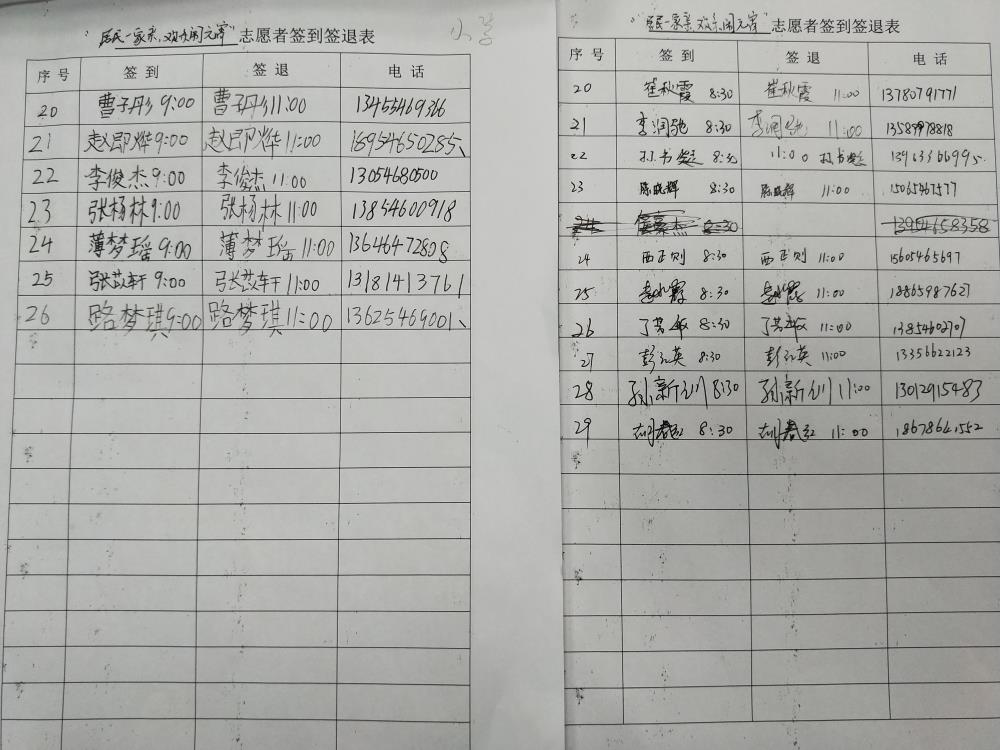 “居民一家亲,欢乐闹元宵”志愿者签到签退表
小学
序号 签到 签退 电话
20 曹子丹 9:00 曹子丹 11:00 13455469366
21 赵即烨 9:00 赵即烨 11:00 18954650285
22 李俊杰 9:00 李俊杰 11:00 13054680500
23 张杨林 9:00 张杨林 11:00 13854600918
24 薄梦瑶 9:00 薄梦瑶 11:00 13646472808
25 张苡轩 9:00 张苡轩 11:00 13181413761
26 路梦琪 9:00 路梦琪 11:00 13625469001
“居民一家亲,欢乐闹元宵”志愿者签到签退表
序号 签到 签退 电话
20 崔秋霞 8:30 崔秋霞 11:00 13780791771
21 李润驰 8:30 李润驰 11:00 13589978818
22 8:30 11:00 13963366995
23 陈晓辉 8:30 陈晓辉 11:00 15065467577
24 8:30 13954658358
24 西正则 8:30 西正则 11:00 15605465697
25 8:30 11:00 18865987627
26 丁芳敏 8:30 丁芳敏 11:00 13854602707
27 彭红英 8:30 彭红英 11:00 13356622123
28 孙新川 8:30 孙新川 11:00 13012915483
29 胡春红 8:30 胡春红 11:00 18678641552